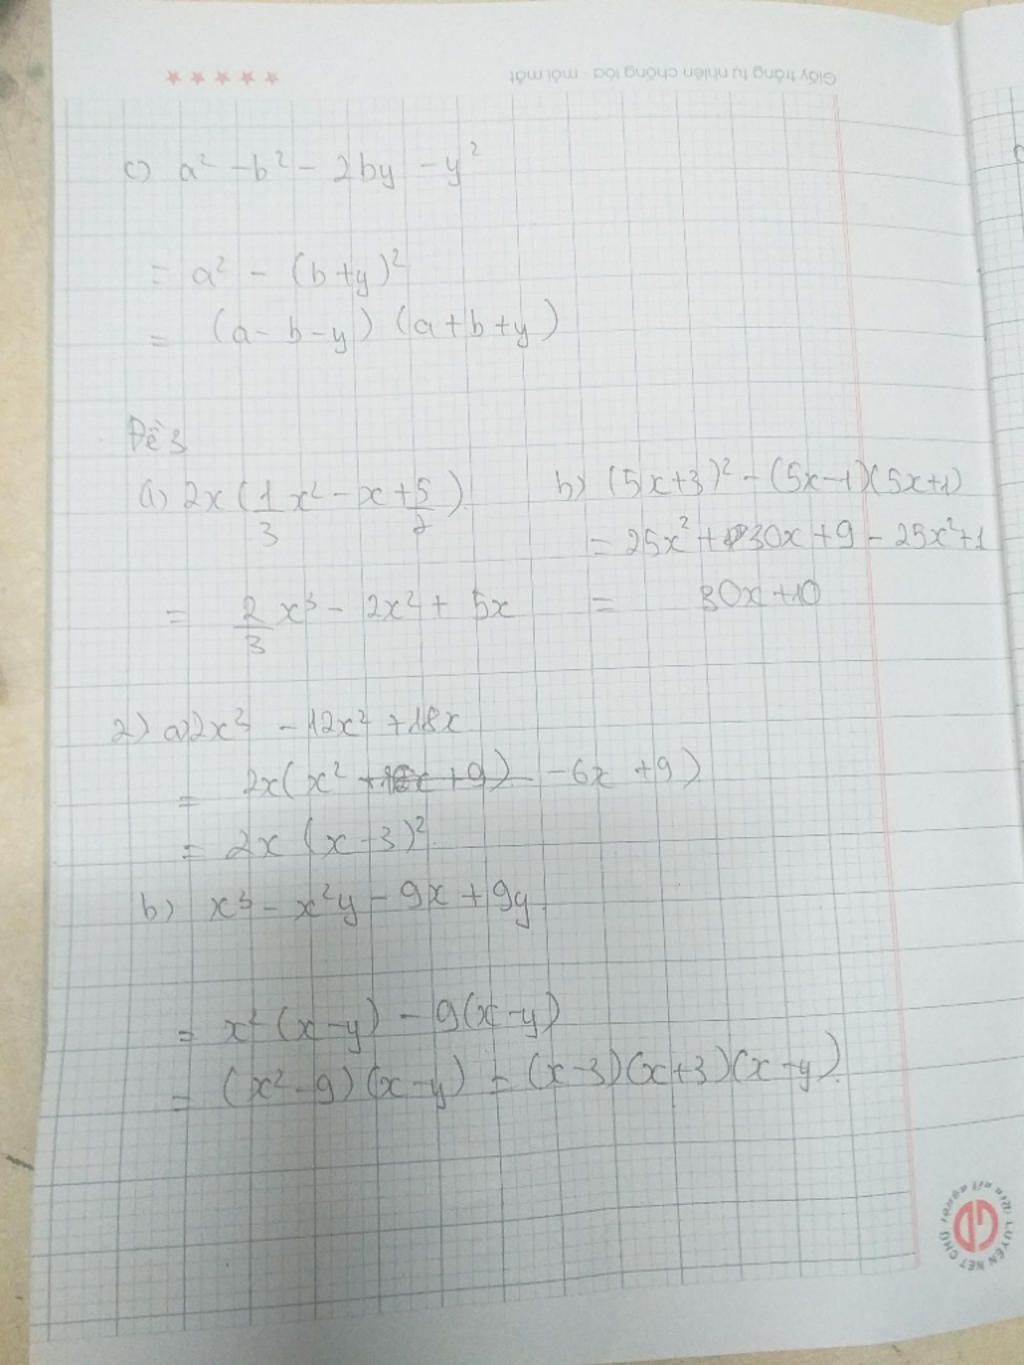 Giấy trắng tự nhiên chống lóa - mỏi mắt
c) a² - b² - 2by - y²
= a² - (b+y)²
= (a - b - y) (a + b + y)
Đề 3
a) 2x (1/3 x² - x + 5/2)
= 2/3 x³ - 2x² + 5x
b) (5x+3)² - (5x-1)(5x+1)
= 25x² + 30x + 9 - 25x² + 1
= 30x + 10
2) a) 2x³ - 12x² + 18x
= 2x (x² - 6x + 9)
= 2x (x - 3)²
b) x³ - x²y - 9x + 9y
= x² (x - y) - 9(x - y)
= (x² - 9) (x - y) = (x - 3)(x + 3)(x - y).
LUYỆN NÉT CHỮ